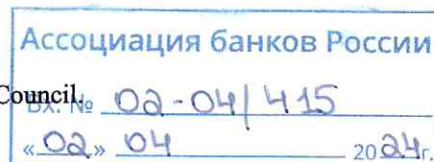 Ассоциация банков России
Council.
Вх. № 02-04/415
«02» 04 2024г.